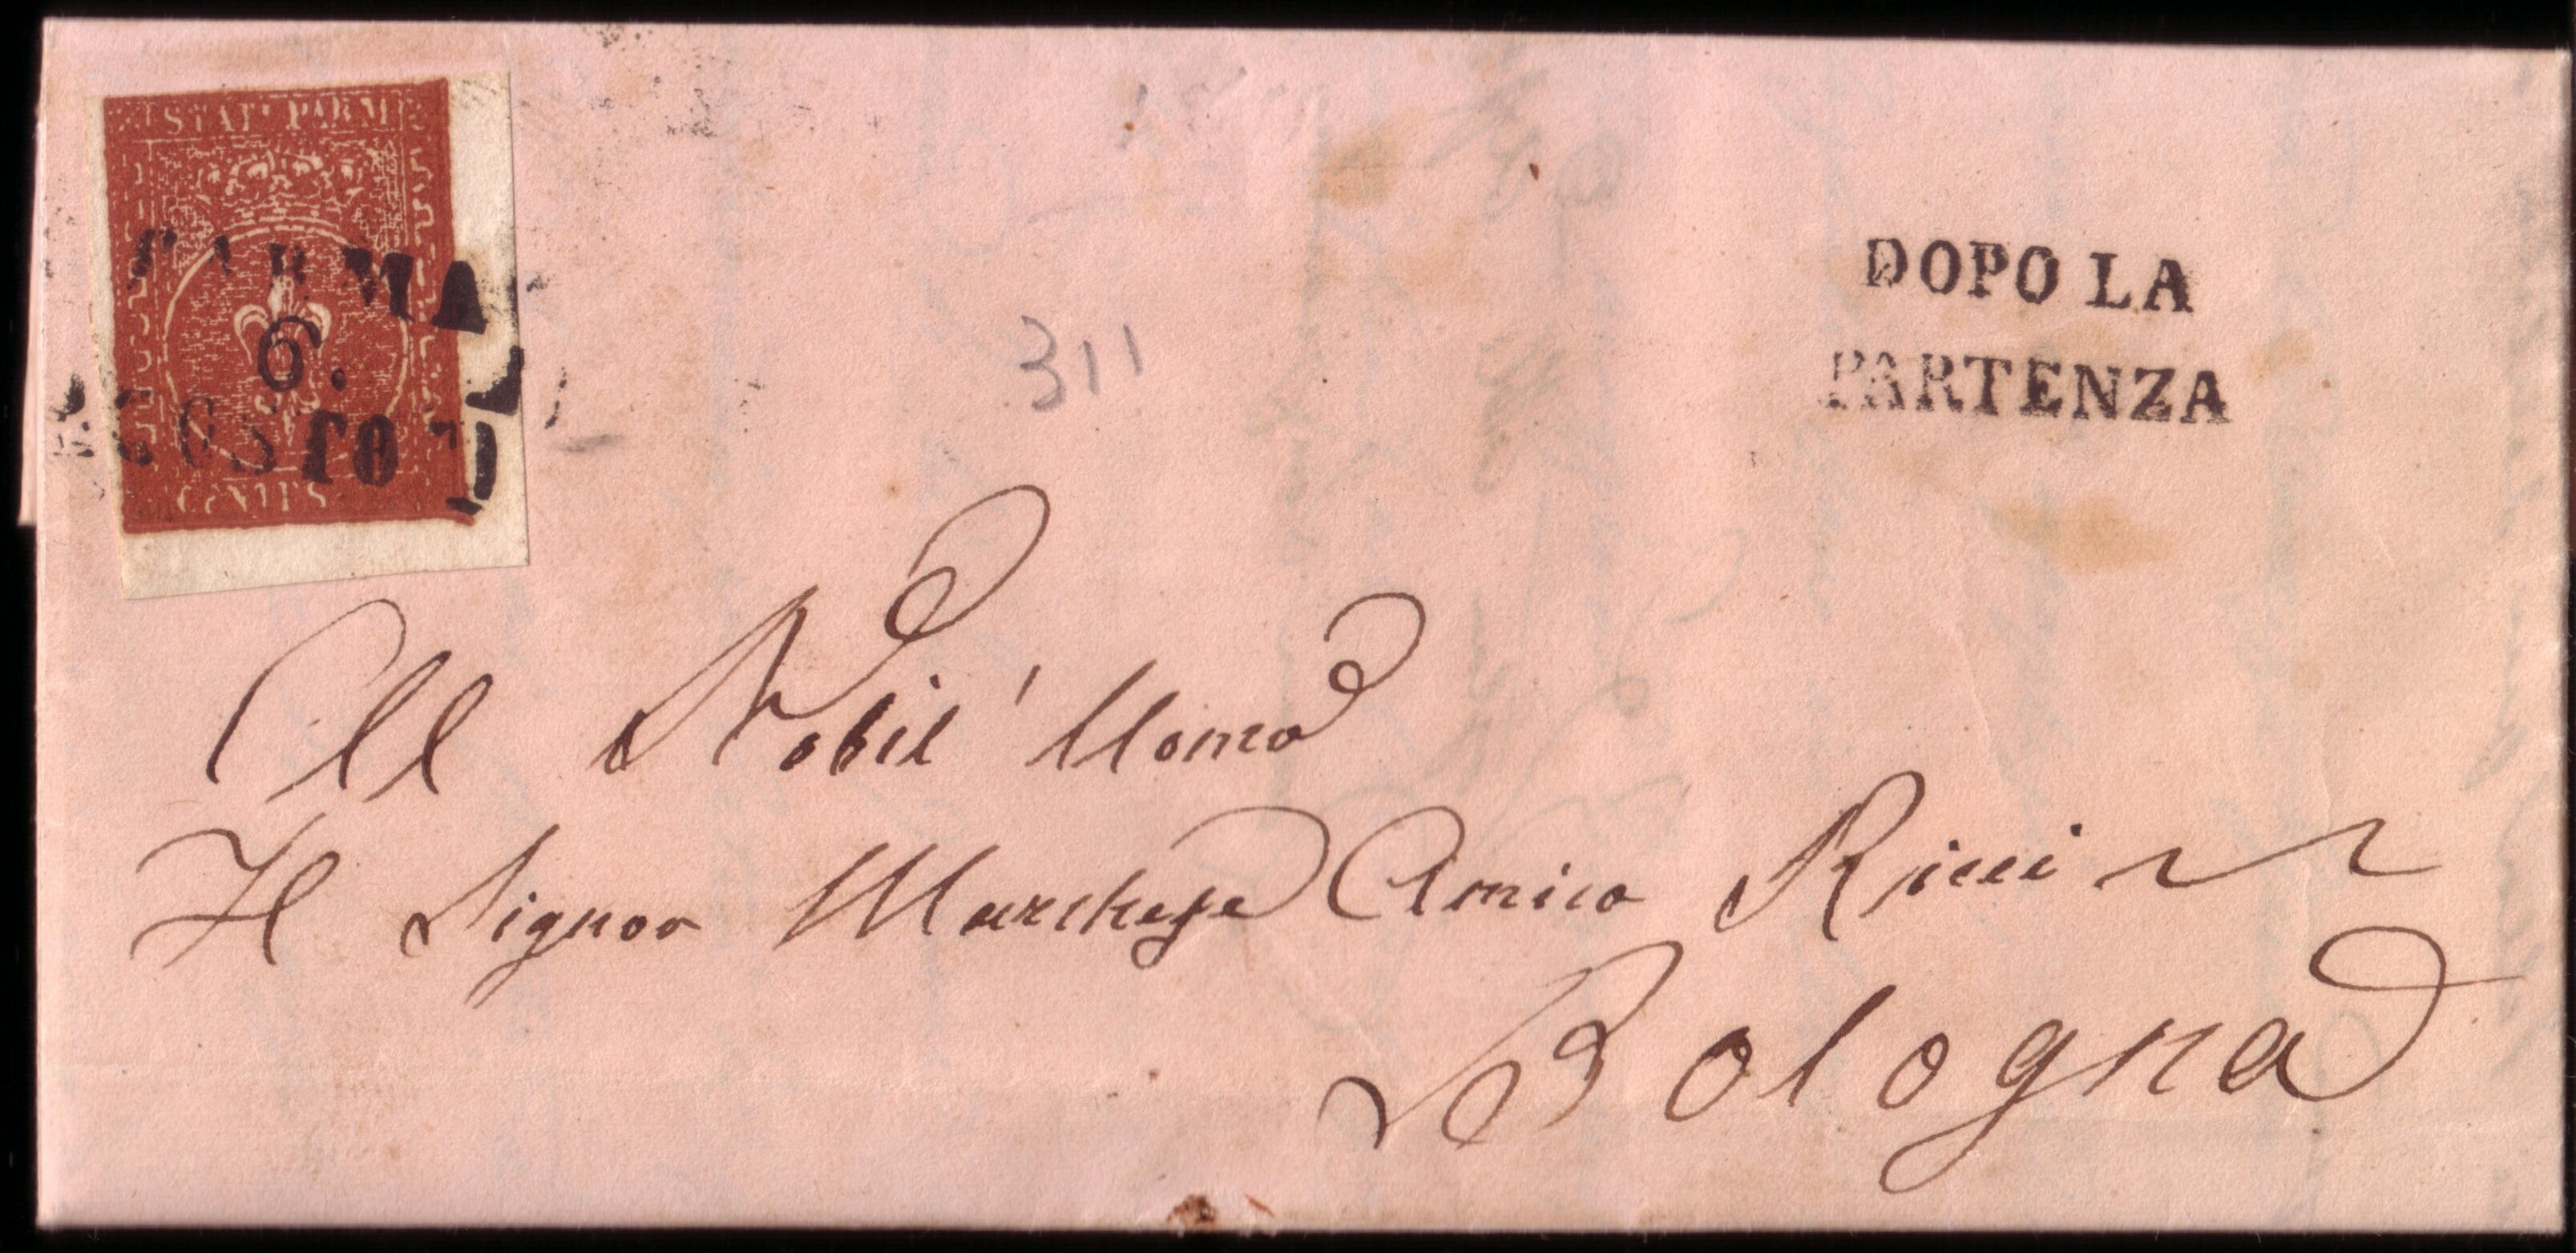 STATI PARM
PARMA
6.
AGOSTO
CENTES
311
DOPO LA
PARTENZA
All Nobil' Uomo
Il Signor Marchese Amico Ricci
Bologna